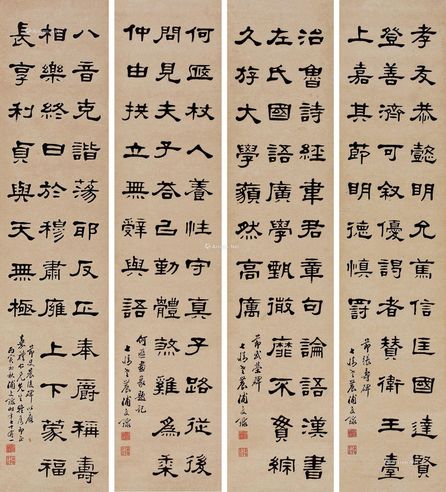 孝友恭懿明允篤信匡國達賢
登善濟可叙優謁者贊衛王臺
上嘉其節明德慎罰
節張壽碑
治魯詩經韋君章句論語漢書
左氏國語廣學甄微靡不貫綜
久斿大學藐然高厲
節武榮碑
何匜杖人養性守真子路從後
問見夫子答㠯勤體煞雞為黍
仲由拱立無辭與語
何匜畫象題記
八音克諧蕩耶反正奉爵稱壽
相樂終日於穆肅雍上下蒙福
長享利貞與天無極
節史晨後碑以應